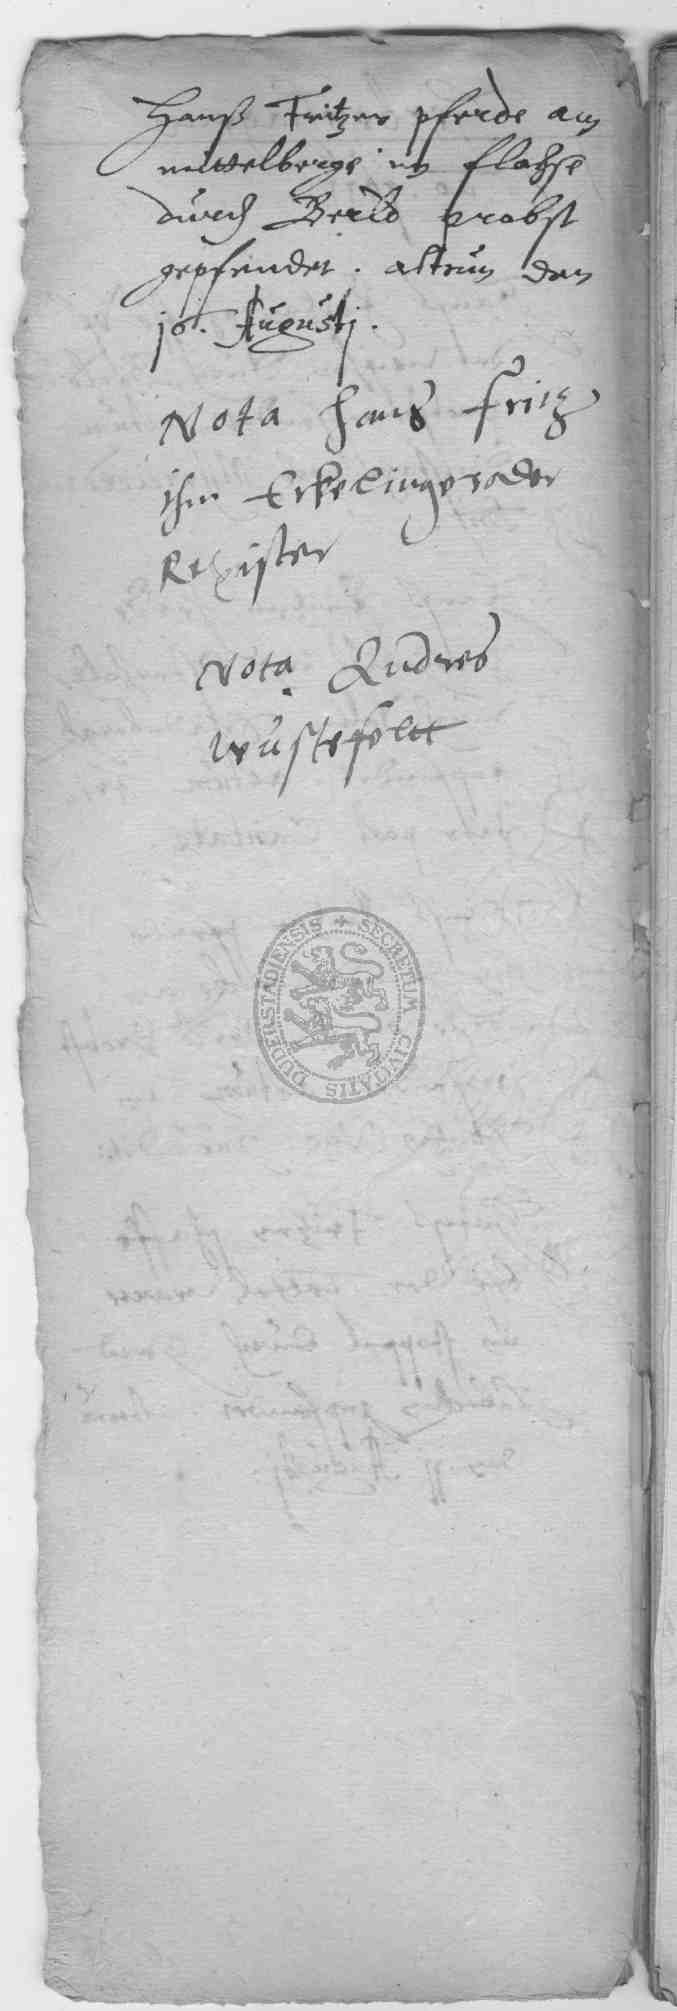 Hanß Fritzen pferde am
mittelberge in flachse
durch Berld probst
gepfendet. actum den
10. Augustj.
Nota Hans Fritz
ihm Erkelingeroder
Register
Nota Andres
Wüstefeltt
SECRETUM CIVITATIS DUDERSTADIENSIS